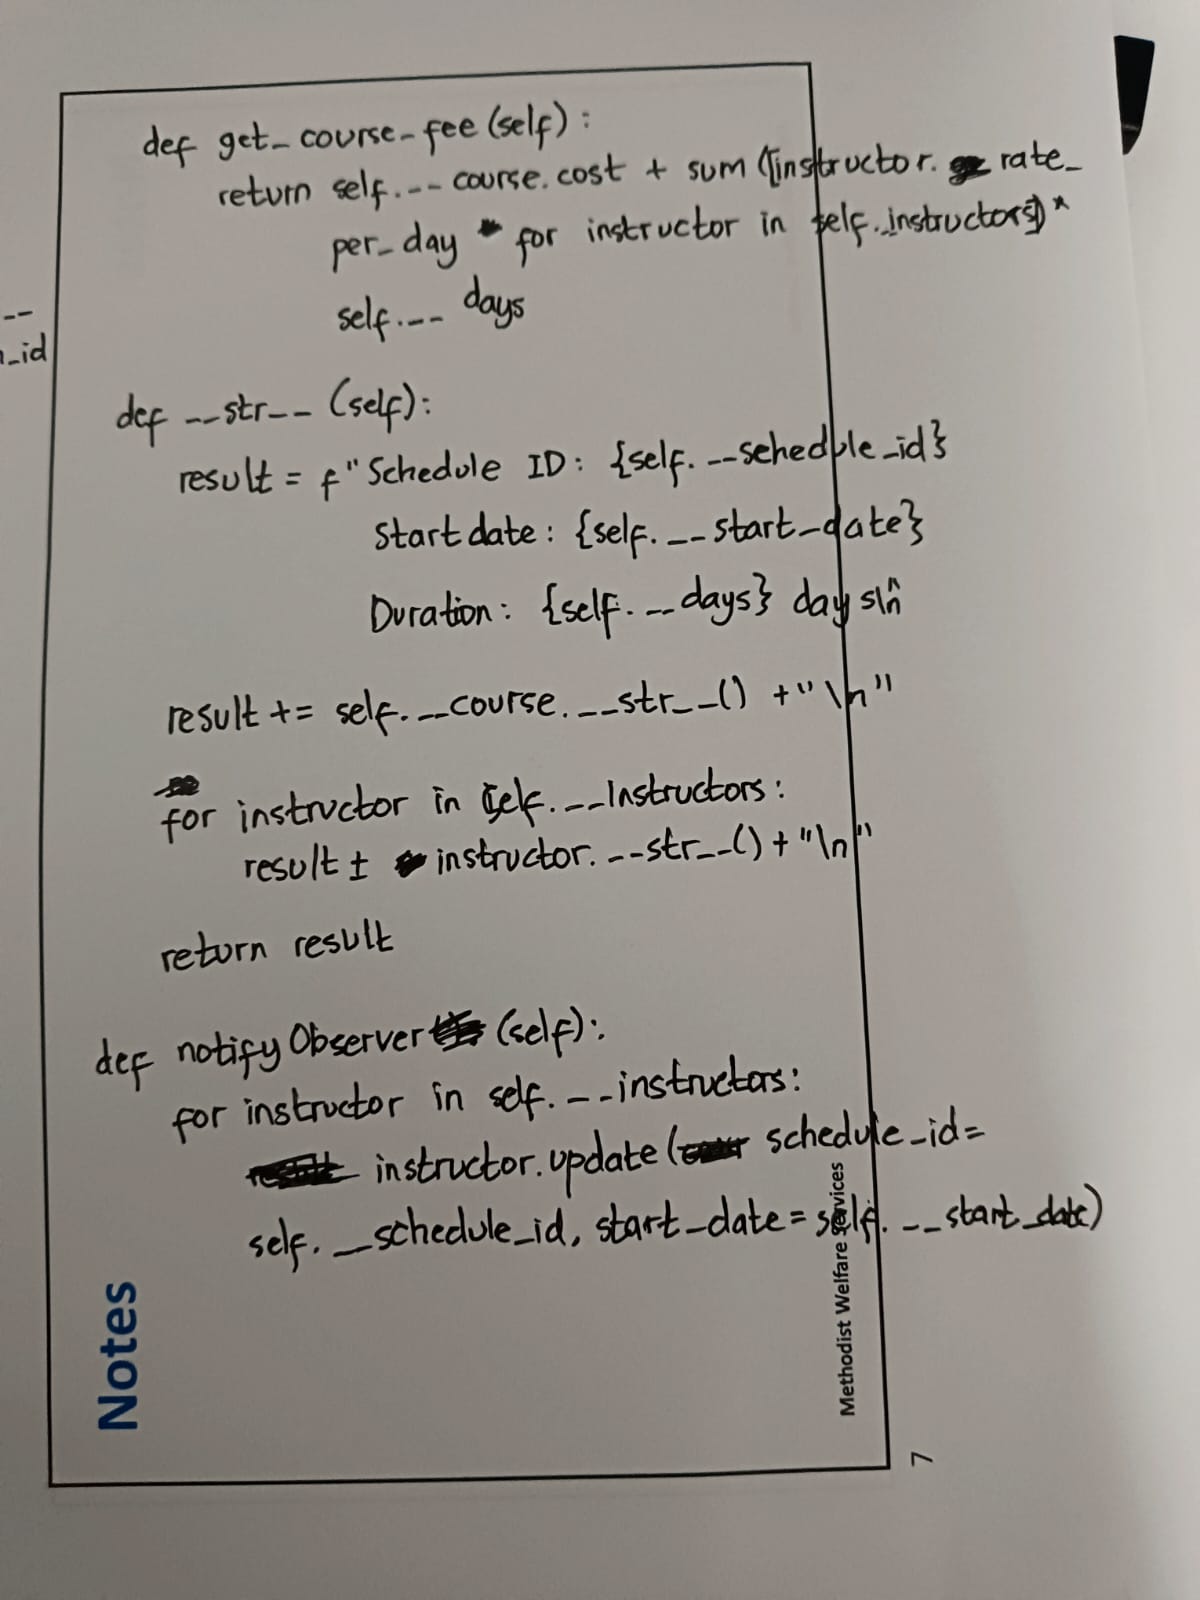 def get_course_fee (self) :
return self.__course.cost + sum ([instructor. rate_
per_day for instructor in self._instructors]) *
self.__ days
--
_id
def __str__ (self):
result = f"Schedule ID: {self.__schedule_id}
Start date : {self.__start_date}
Duration : {self.__days} days\n"
result += self.__course.__str__() + "\n"
for instructor in self.__instructors :
result ± instructor.__str__() + "\n"
return result
def notifyObserver (self):
for instructor in self.__instructors:
instructor.update ( schedule_id=
self.__schedule_id, start_date = self.__start_date)
Notes
Methodist Welfare Services
7